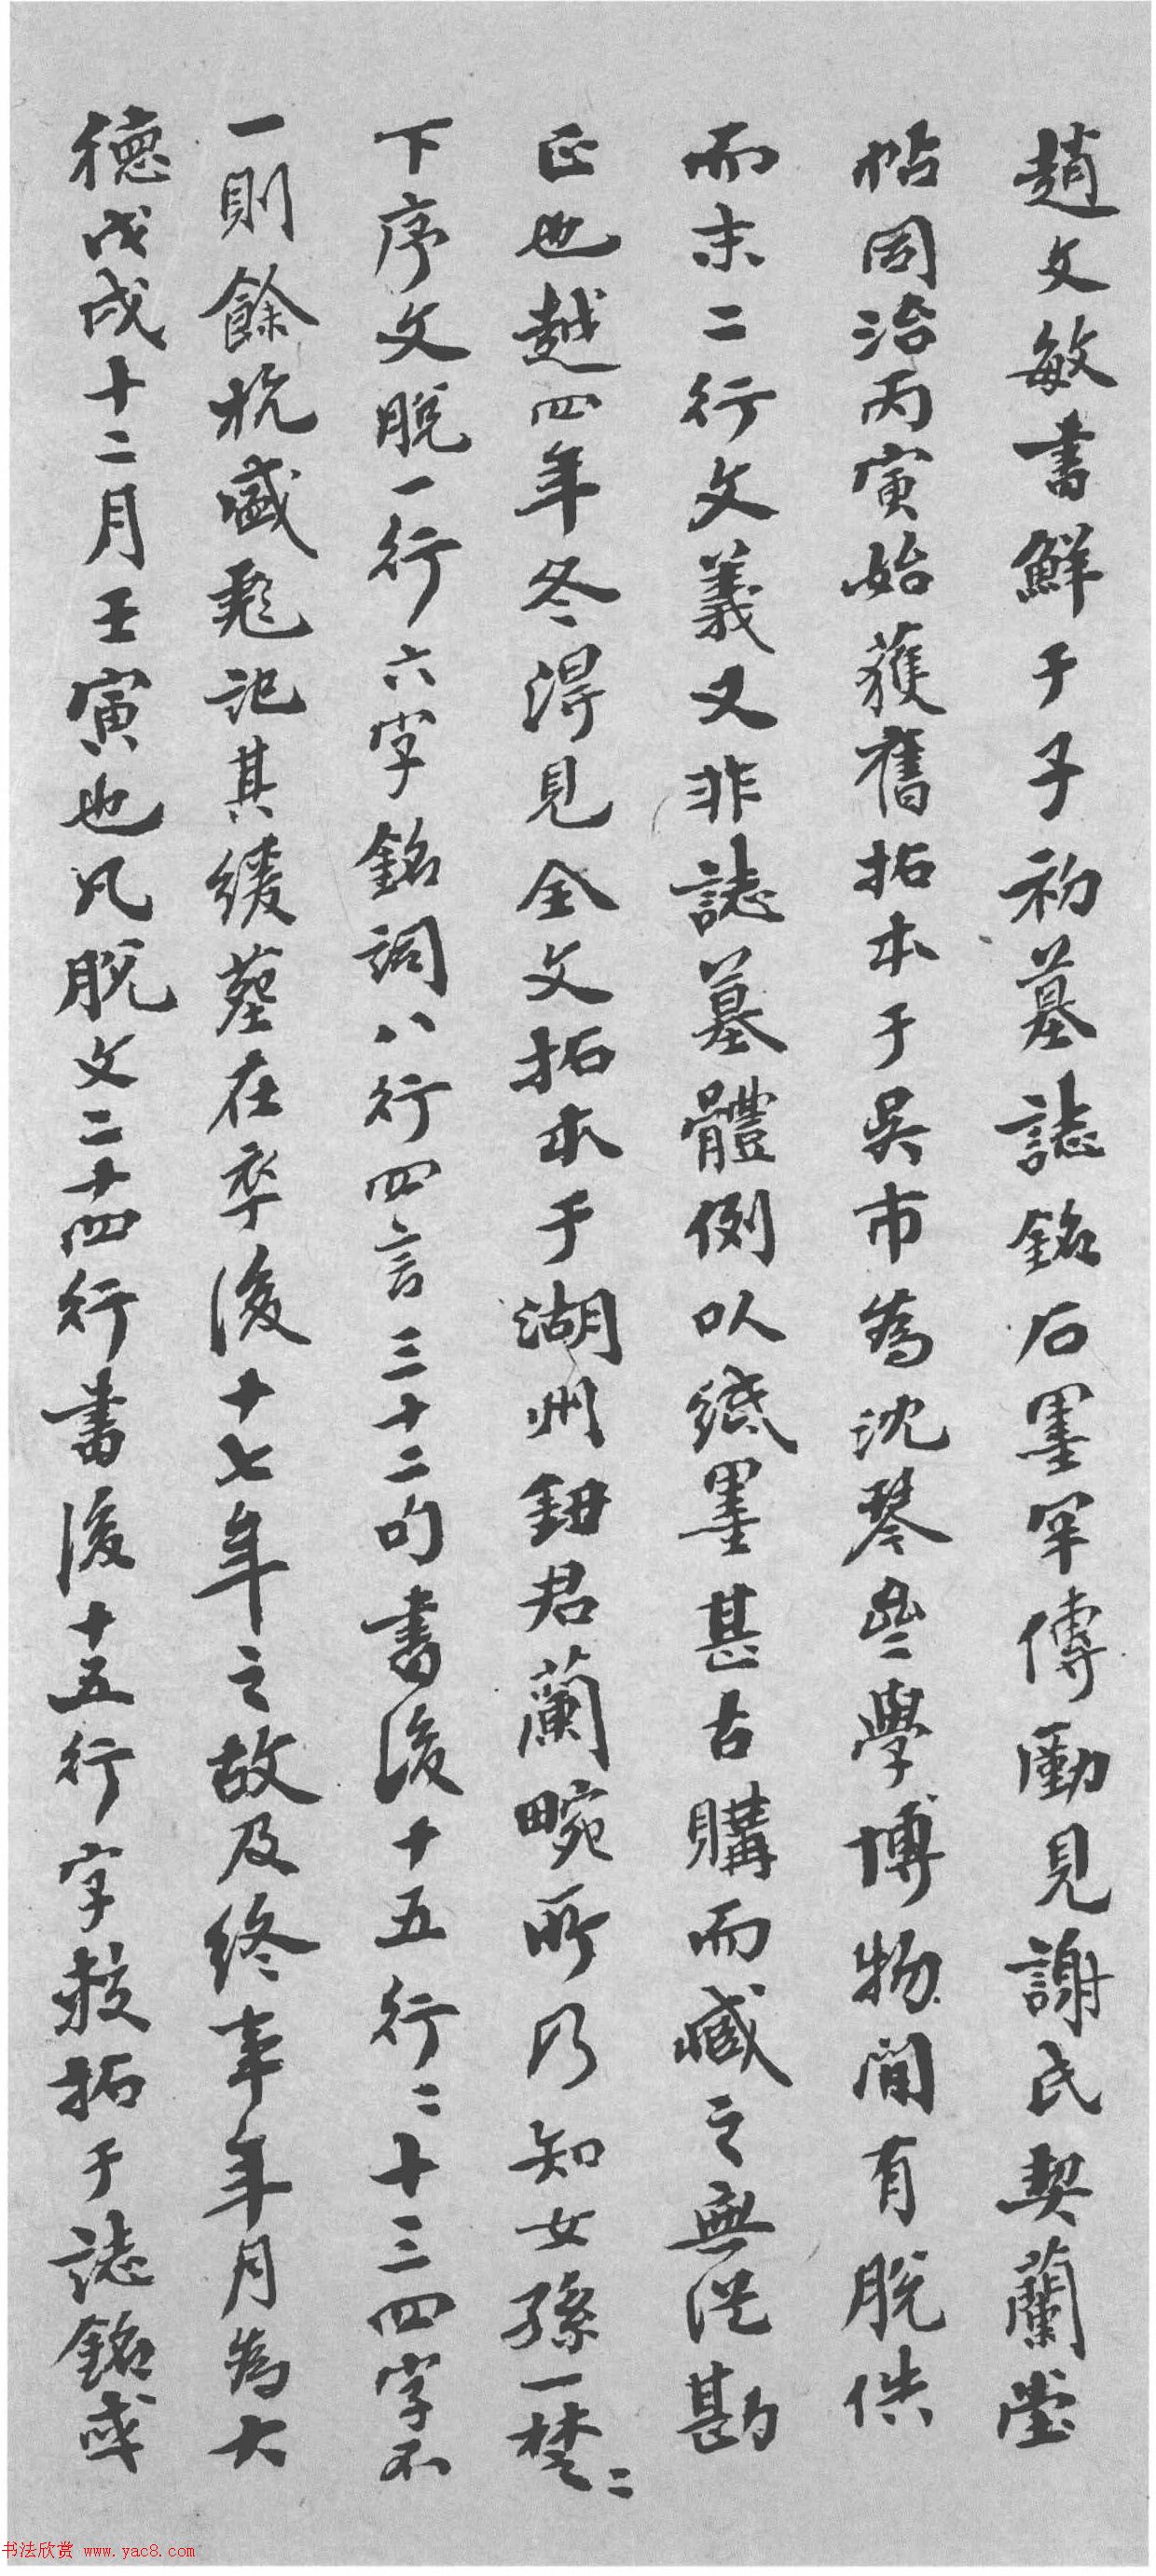 趙文敏書鮮于子初墓誌銘石墨罕傳勵見謝氏契蘭堂
帖同治丙寅始獲舊拓本于吳市為沈琴叄學博物間有脫佚
而末二行文義又非誌墓體例以紙墨甚古購而臧之無從勘
正也越四年冬得見全文拓本于湖州鈕君蘭畹所乃知女孫一樷二
下序文脫一行六字銘詞八行四言三十二句書後十五行二十三四字不
一則餘杭盛彪記其緩葬在卒後十七年之故及終事年月為大
德戊戌十二月壬寅也凡脫文二十四行書後十五行字較拓于誌銘或
书法欣赏 www.yac8.com